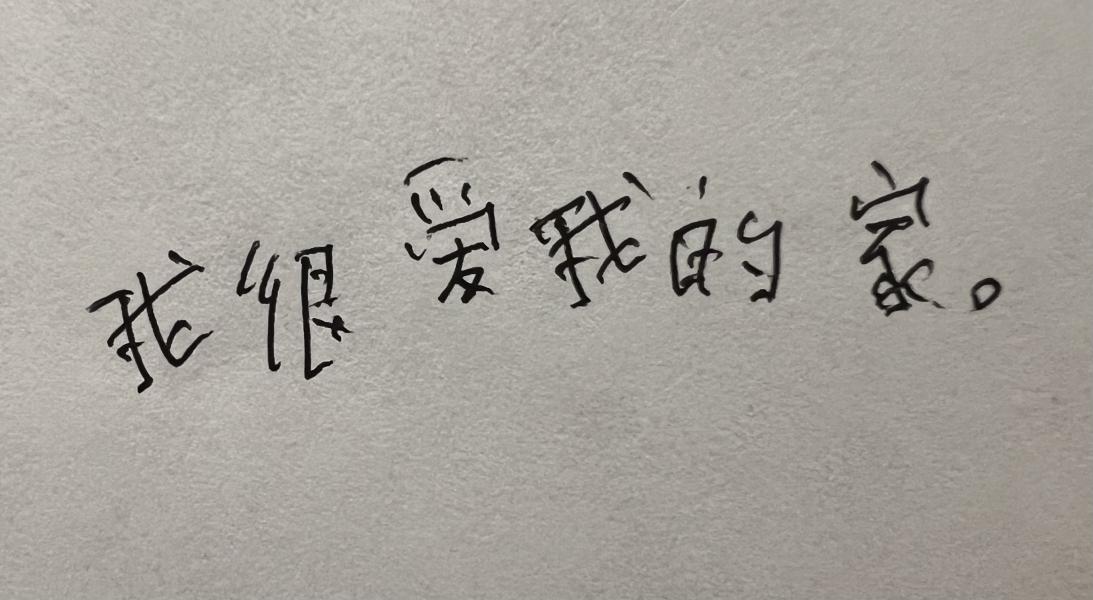 我很爱我的家。